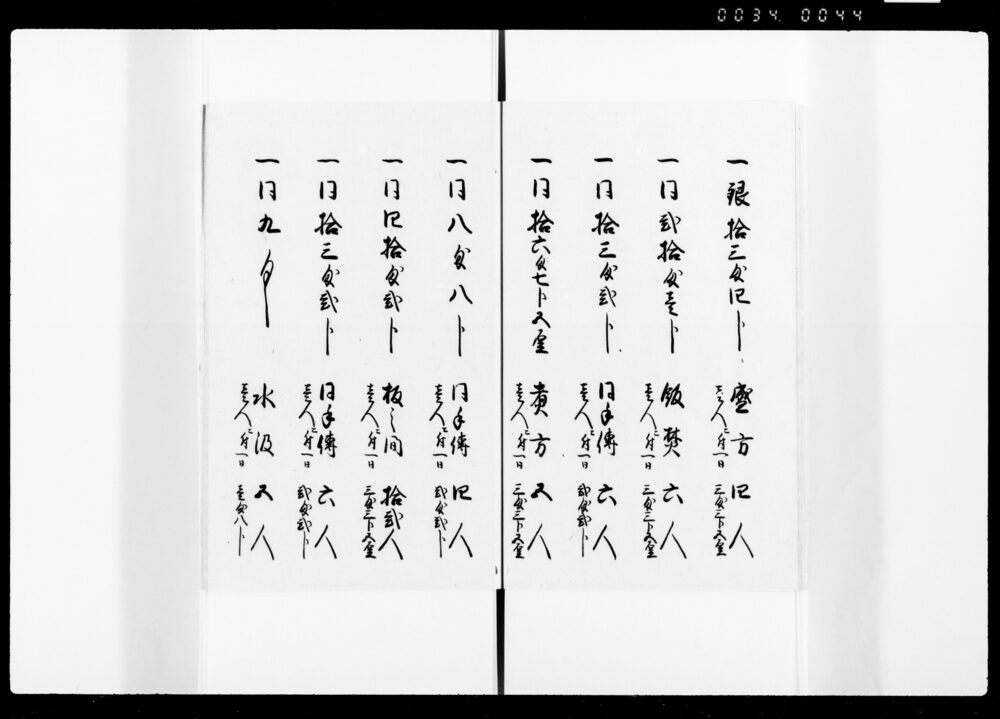 0034. 0044
一銀拾三匁四分 盛方 四人
壱人ニ付一日 三匁三分五厘
一同弐拾匁壱分 飯焚 六人
壱人ニ付一日 三匁三分五厘
一同拾三匁弐分 同手傳 六人
壱人ニ付一日 弐匁弐分
一同拾六匁七分五厘 煮方 五人
壱人ニ付一日 三匁三分五厘
一同八匁八分 同手傳 四人
壱人ニ付一日 弐匁弐分
一同四拾匁弐分 板之間 拾弐人
壱人ニ付一日 三匁三分五厘
一同拾三匁弐分 同手傳 六人
壱人ニ付一日 弐匁弐分
一同九匁 水汲 五人
壱人ニ付一日 壱匁八分